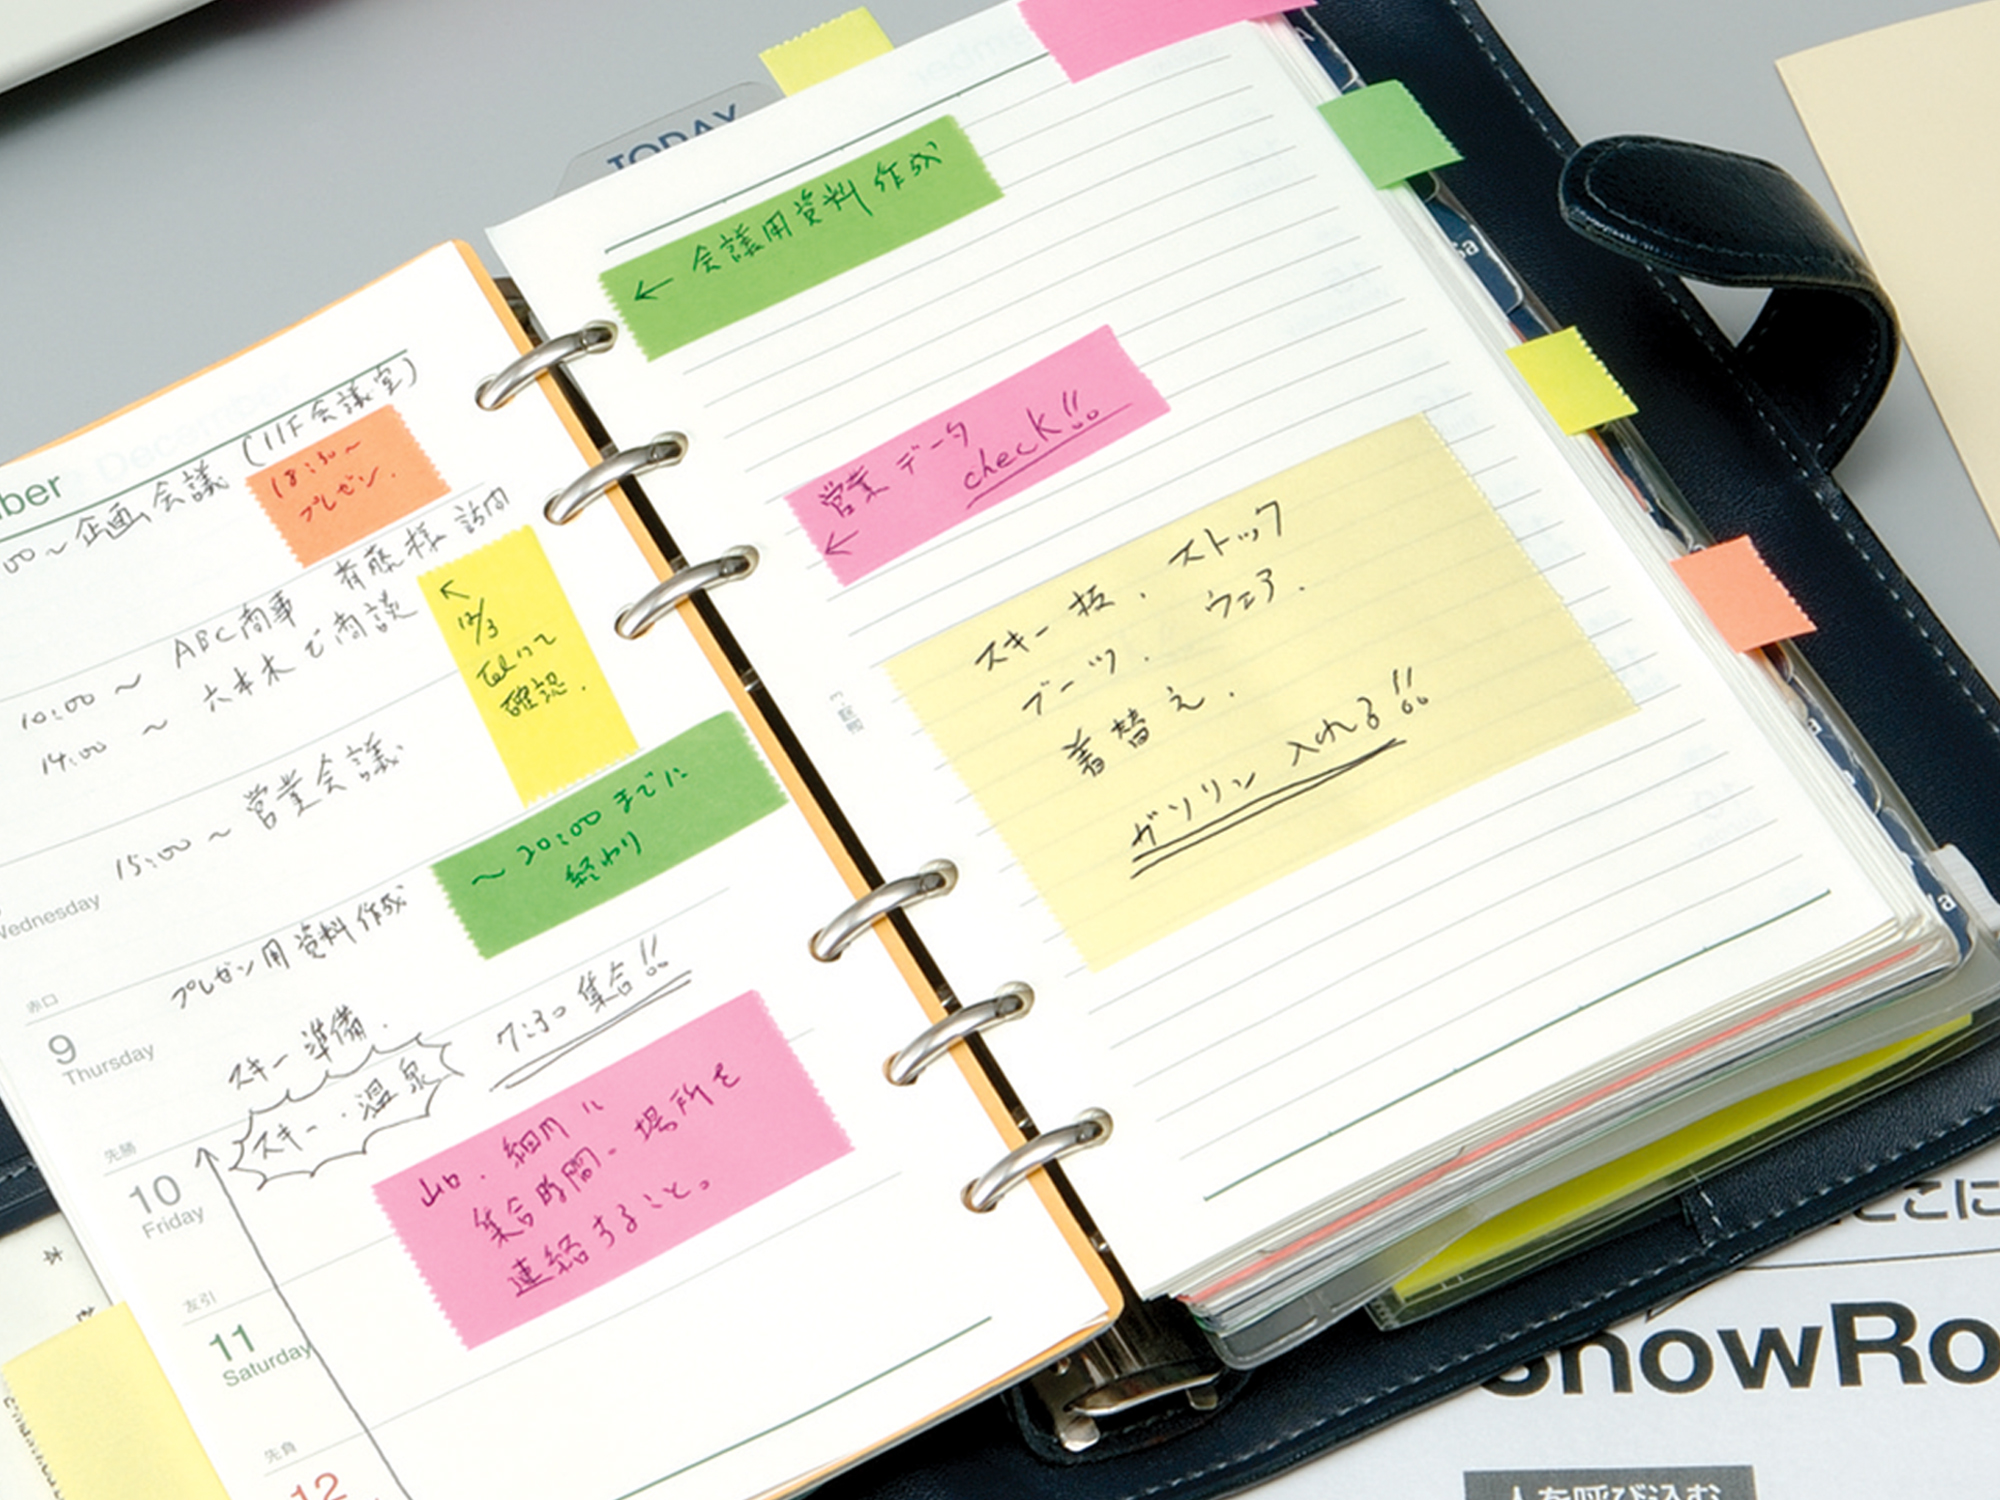 TODAY
ber
00～企画会議（11F会議室）
18:30～
プレゼン.
10:00～ ABC商事 斉藤様 訪問
14:00～ 六本木で商談
↖
12/3
telにて
確認.
15:00～営業会議
Wednesday
～20:00までに
終わり
プレゼン用資料作成
赤口
9
Thursday
スキー準備.
7:30集合!!
スキー・温泉
先勝
10
Friday
細川に
集合時間・場所を
連絡すること。
友引
11
Saturday
先負
12
←会議用資料作成
営業データ
check!!
←
スキー板. ストック
ブーツ. ウェア.
着替え.
ガソリン入れる!!
Sa
ここに
SnowRo
人を呼び込む